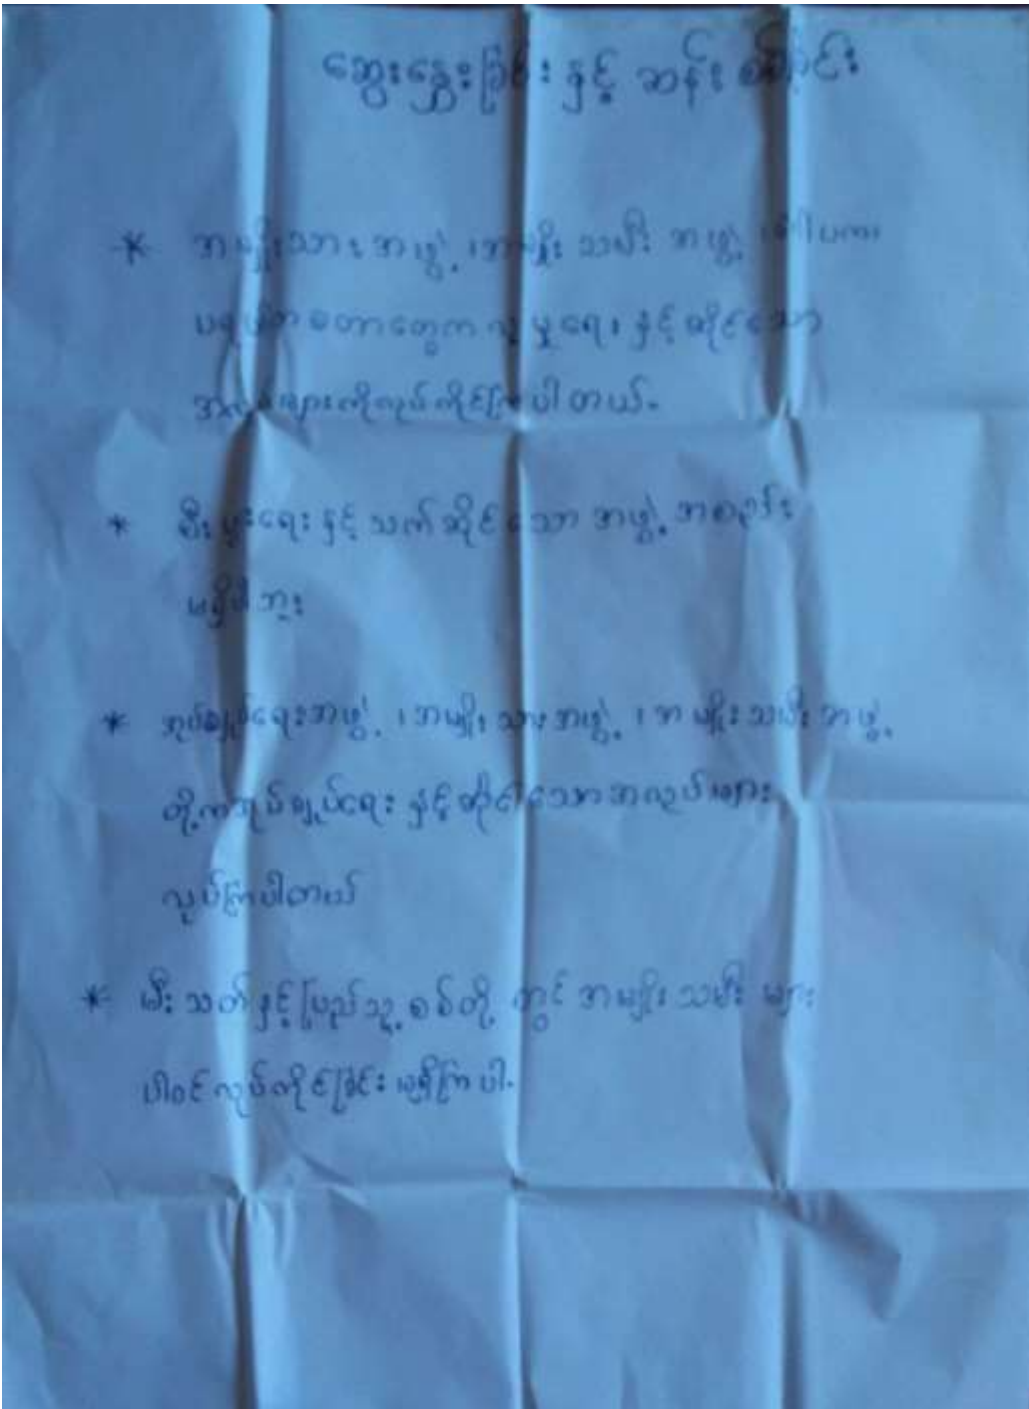 ဆွေးနွေးခြင်း နှင့် ဆန်းစစ်
* အမျိုးသားအဖွဲ့ ၊ အမျိုးသမီး အဖွဲ့ ၊
ပရဟိတ တွေက လူမှုရေး နှင့်ဆိုင်သော
အလုပ်များကိုလုပ်ကိုင်ကြပါတယ်.
* စီးပွားရေး နှင့် သက်ဆိုင်သော အဖွဲ့ အစည်း
မရှိပါဘူး
* အုပ်ချုပ်ရေးအဖွဲ့ ၊ အမျိုးသားအဖွဲ့ ၊ အမျိုးသမီး အဖွဲ့
တို့ကအုပ်ချုပ်ရေး နှင့်ဆိုင်သောအလုပ်များ
လုပ်ကြပါတယ်
* မီးသတ်နှင့် ပြည်သူ့စစ်တို့ တွင် အမျိုးသမီး များ
ပါဝင် လုပ်ကိုင်ခြင်း မရှိကြပါ.